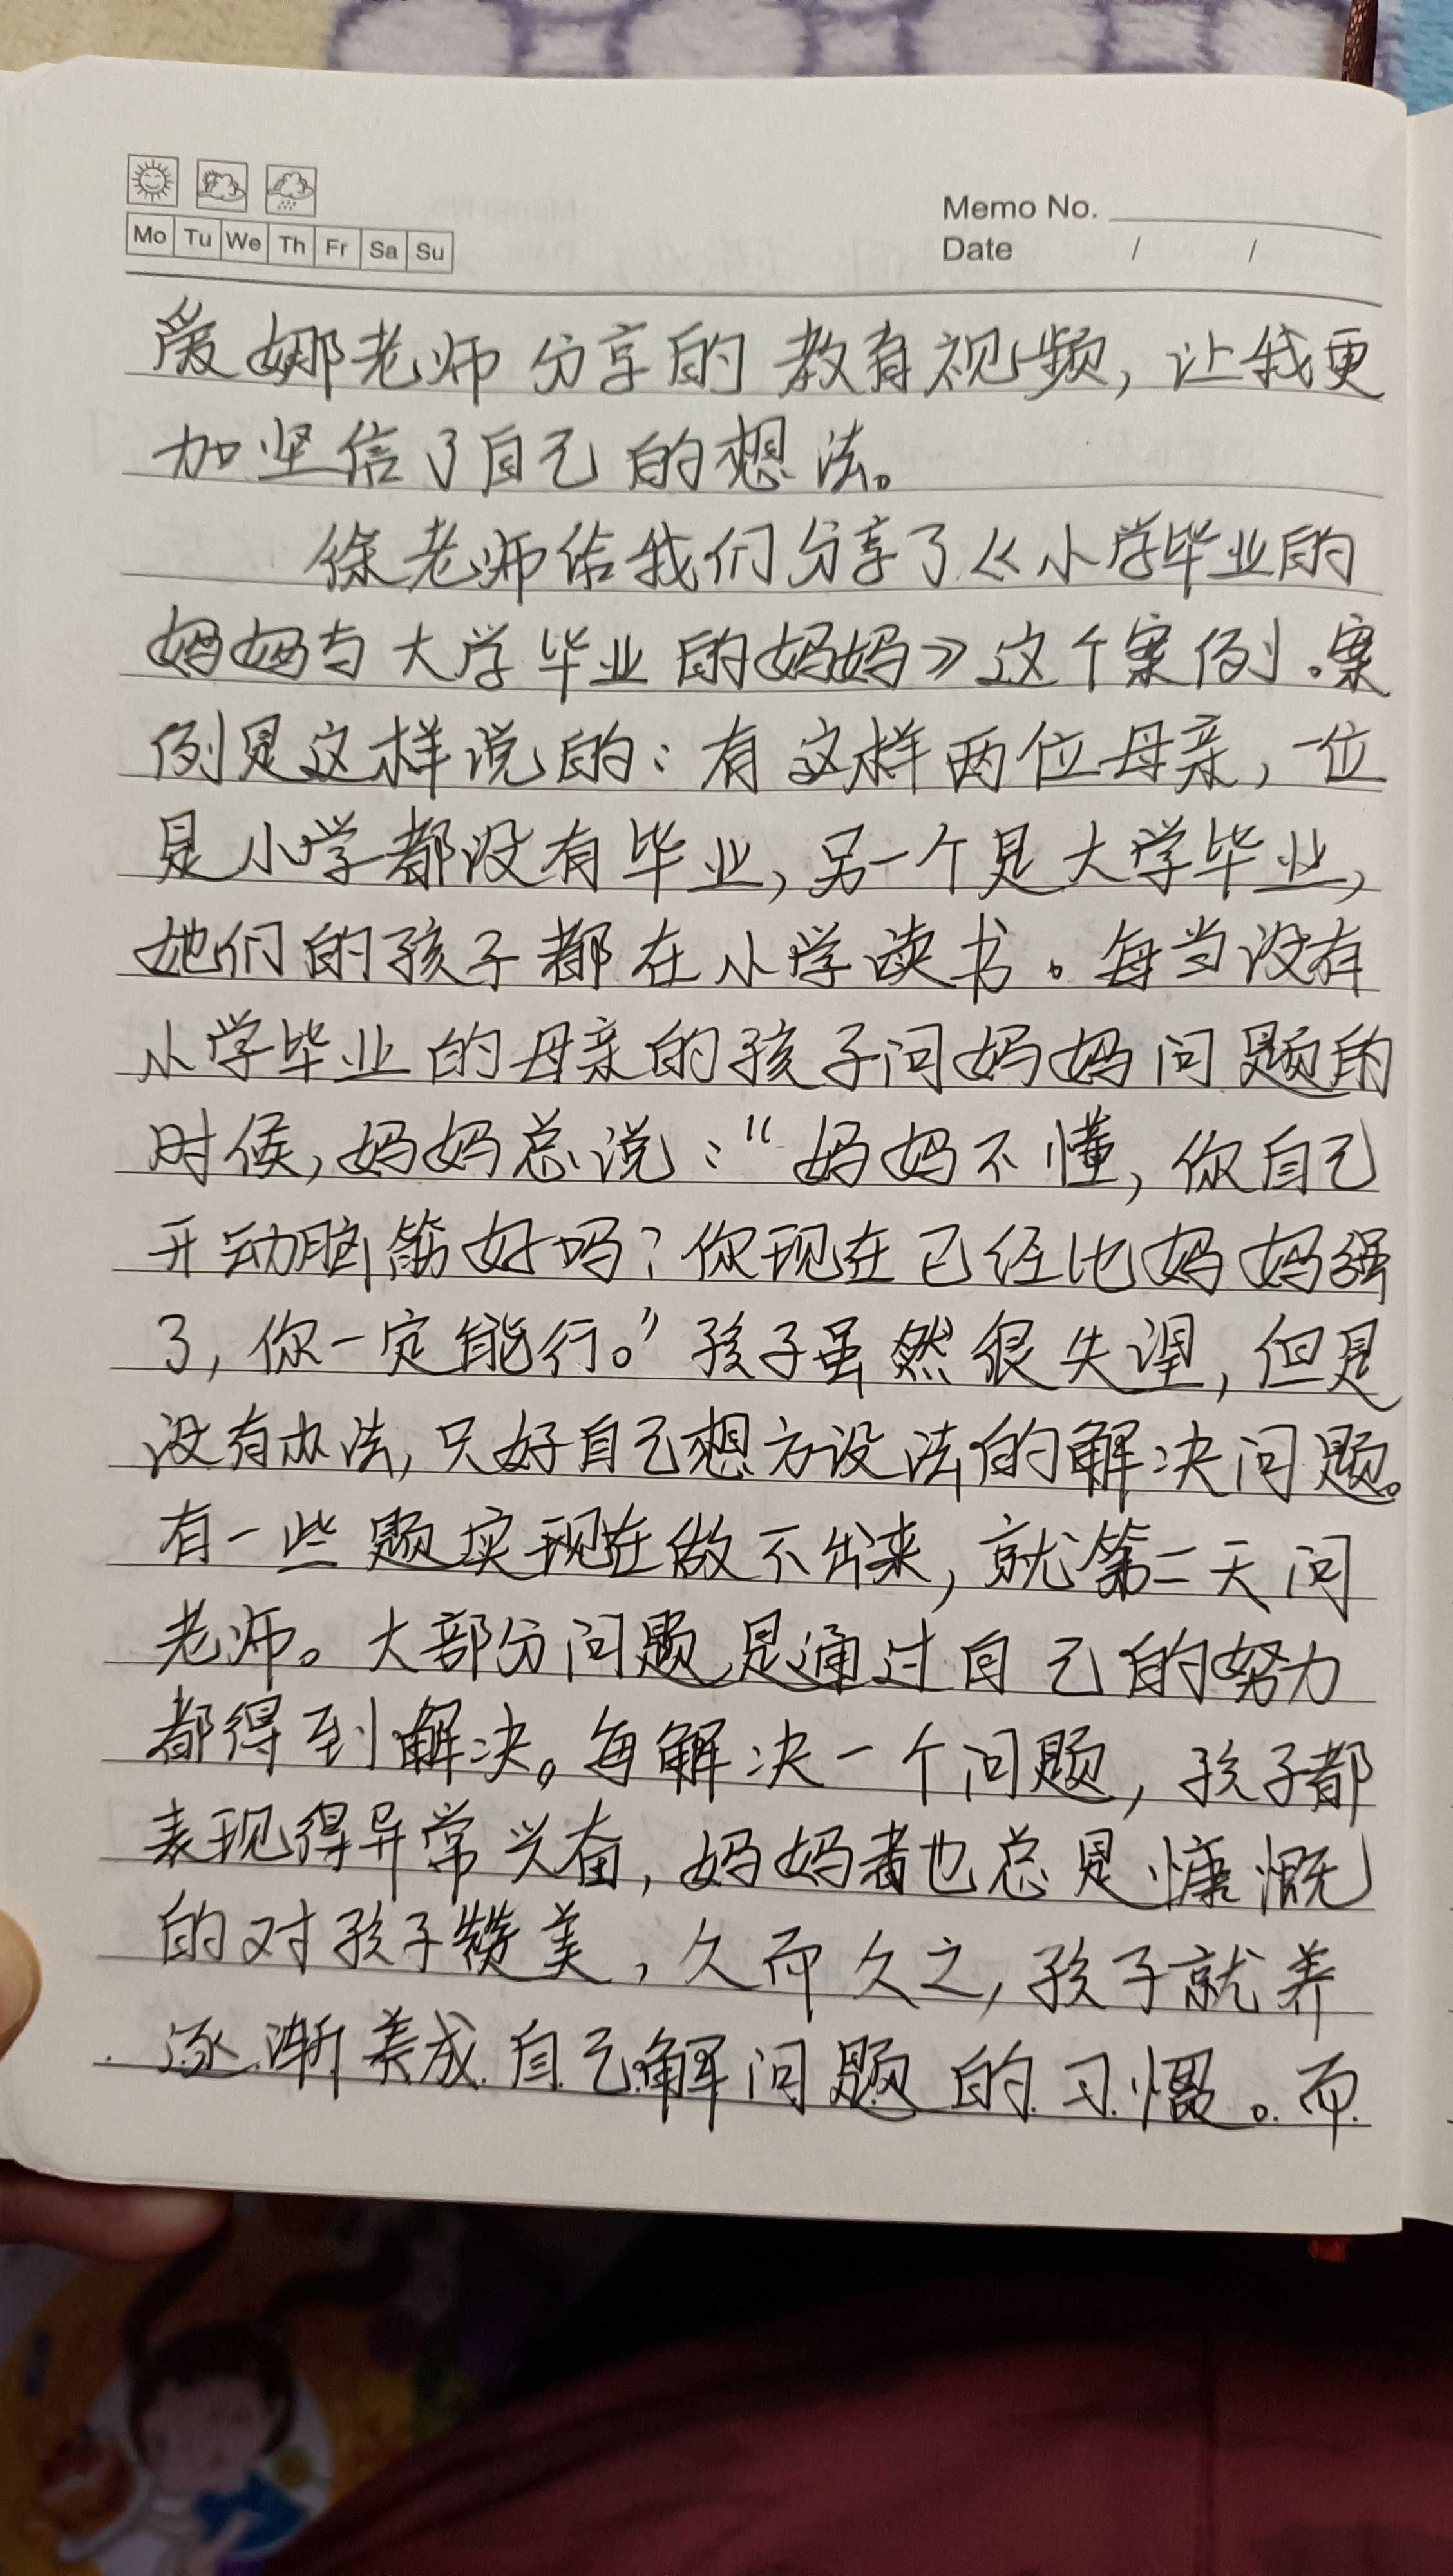 Memo No.
Mo Tu We Th Fr Sa Su
Date / /
爱娜老师分享的教育视频,让我更
加坚信了自己的想法。
徐老师给我们分享了《小学毕业的
妈妈与大学毕业的妈妈》这个案例。案
例是这样说的:有这样两位母亲,一位
是小学都没有毕业,另一个是大学毕业,
她们的孩子都在小学读书。每当没有
小学毕业的母亲的孩子问妈妈问题的
时候,妈妈总说:“妈妈不懂,你自己
开动脑筋好吗?你现在已经比妈妈强
了,你一定能行。”孩子虽然很失望,但是
没有办法,只好自己想方设法的解决问题。
有一些题实现在做不出来,就第二天问
老师。大部分问题是通过自己的努力
都得到解决。每解决一个问题,孩子都
表现得异常兴奋,妈妈者也总是慷慨
的对孩子赞美,久而久之,孩子就养
逐渐养成自己解问题的习惯。而